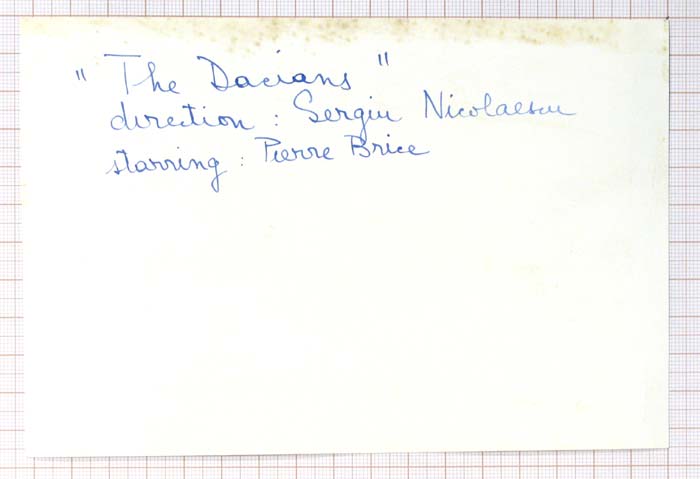 " The Dacians "
direction : Sergiu Nicolaescu
starring : Pierre Brice